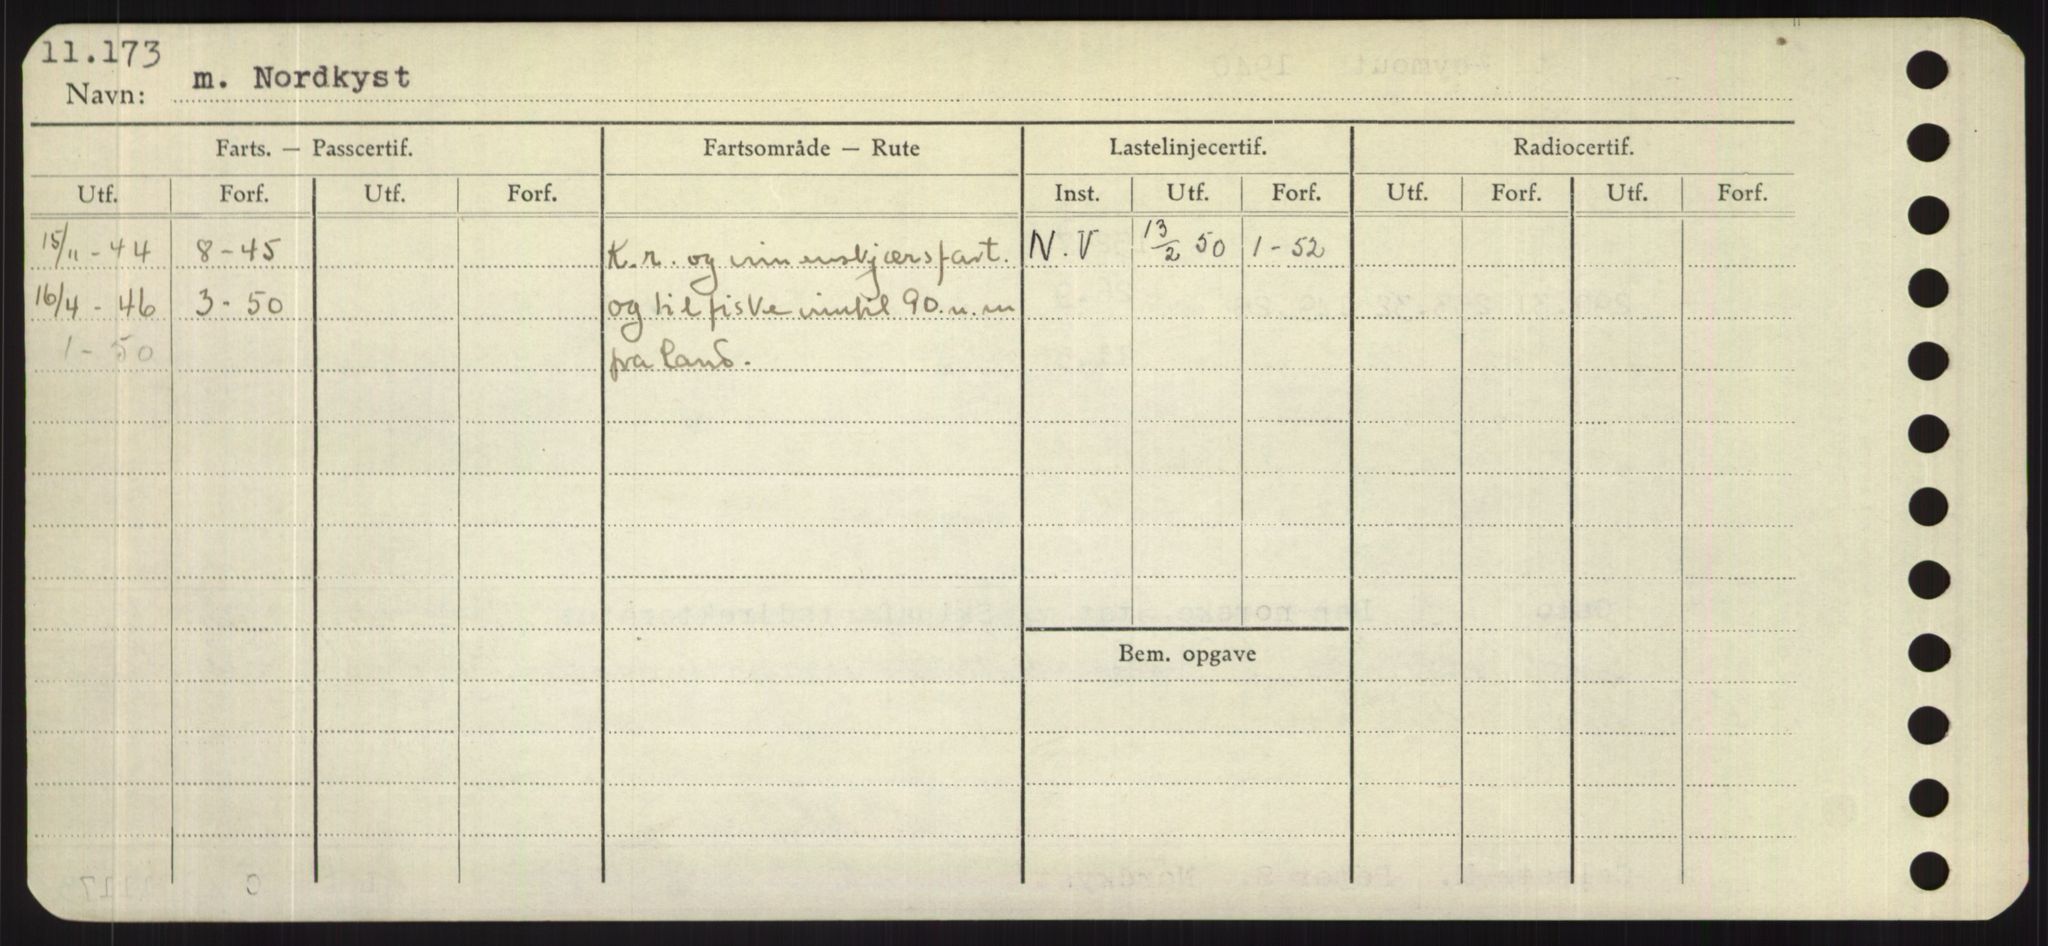 11.173
Navn: m. Nordkyst
Farts. — Passcertif. Fartsområde — Rute Lastelinjecertif. Radiocertif.
Utf. Forf. Utf. Forf. Inst. Utf. Forf. Utf. Forf. Utf. Forf.
15/11 - 44 8 - 45 K.r. og innenskjærsfart. N.V 13/2 50 1 - 52
16/4 - 46 3 - 50 og til fiske inntil 90 n. m
1 - 50 fra land.
Bem. opgave